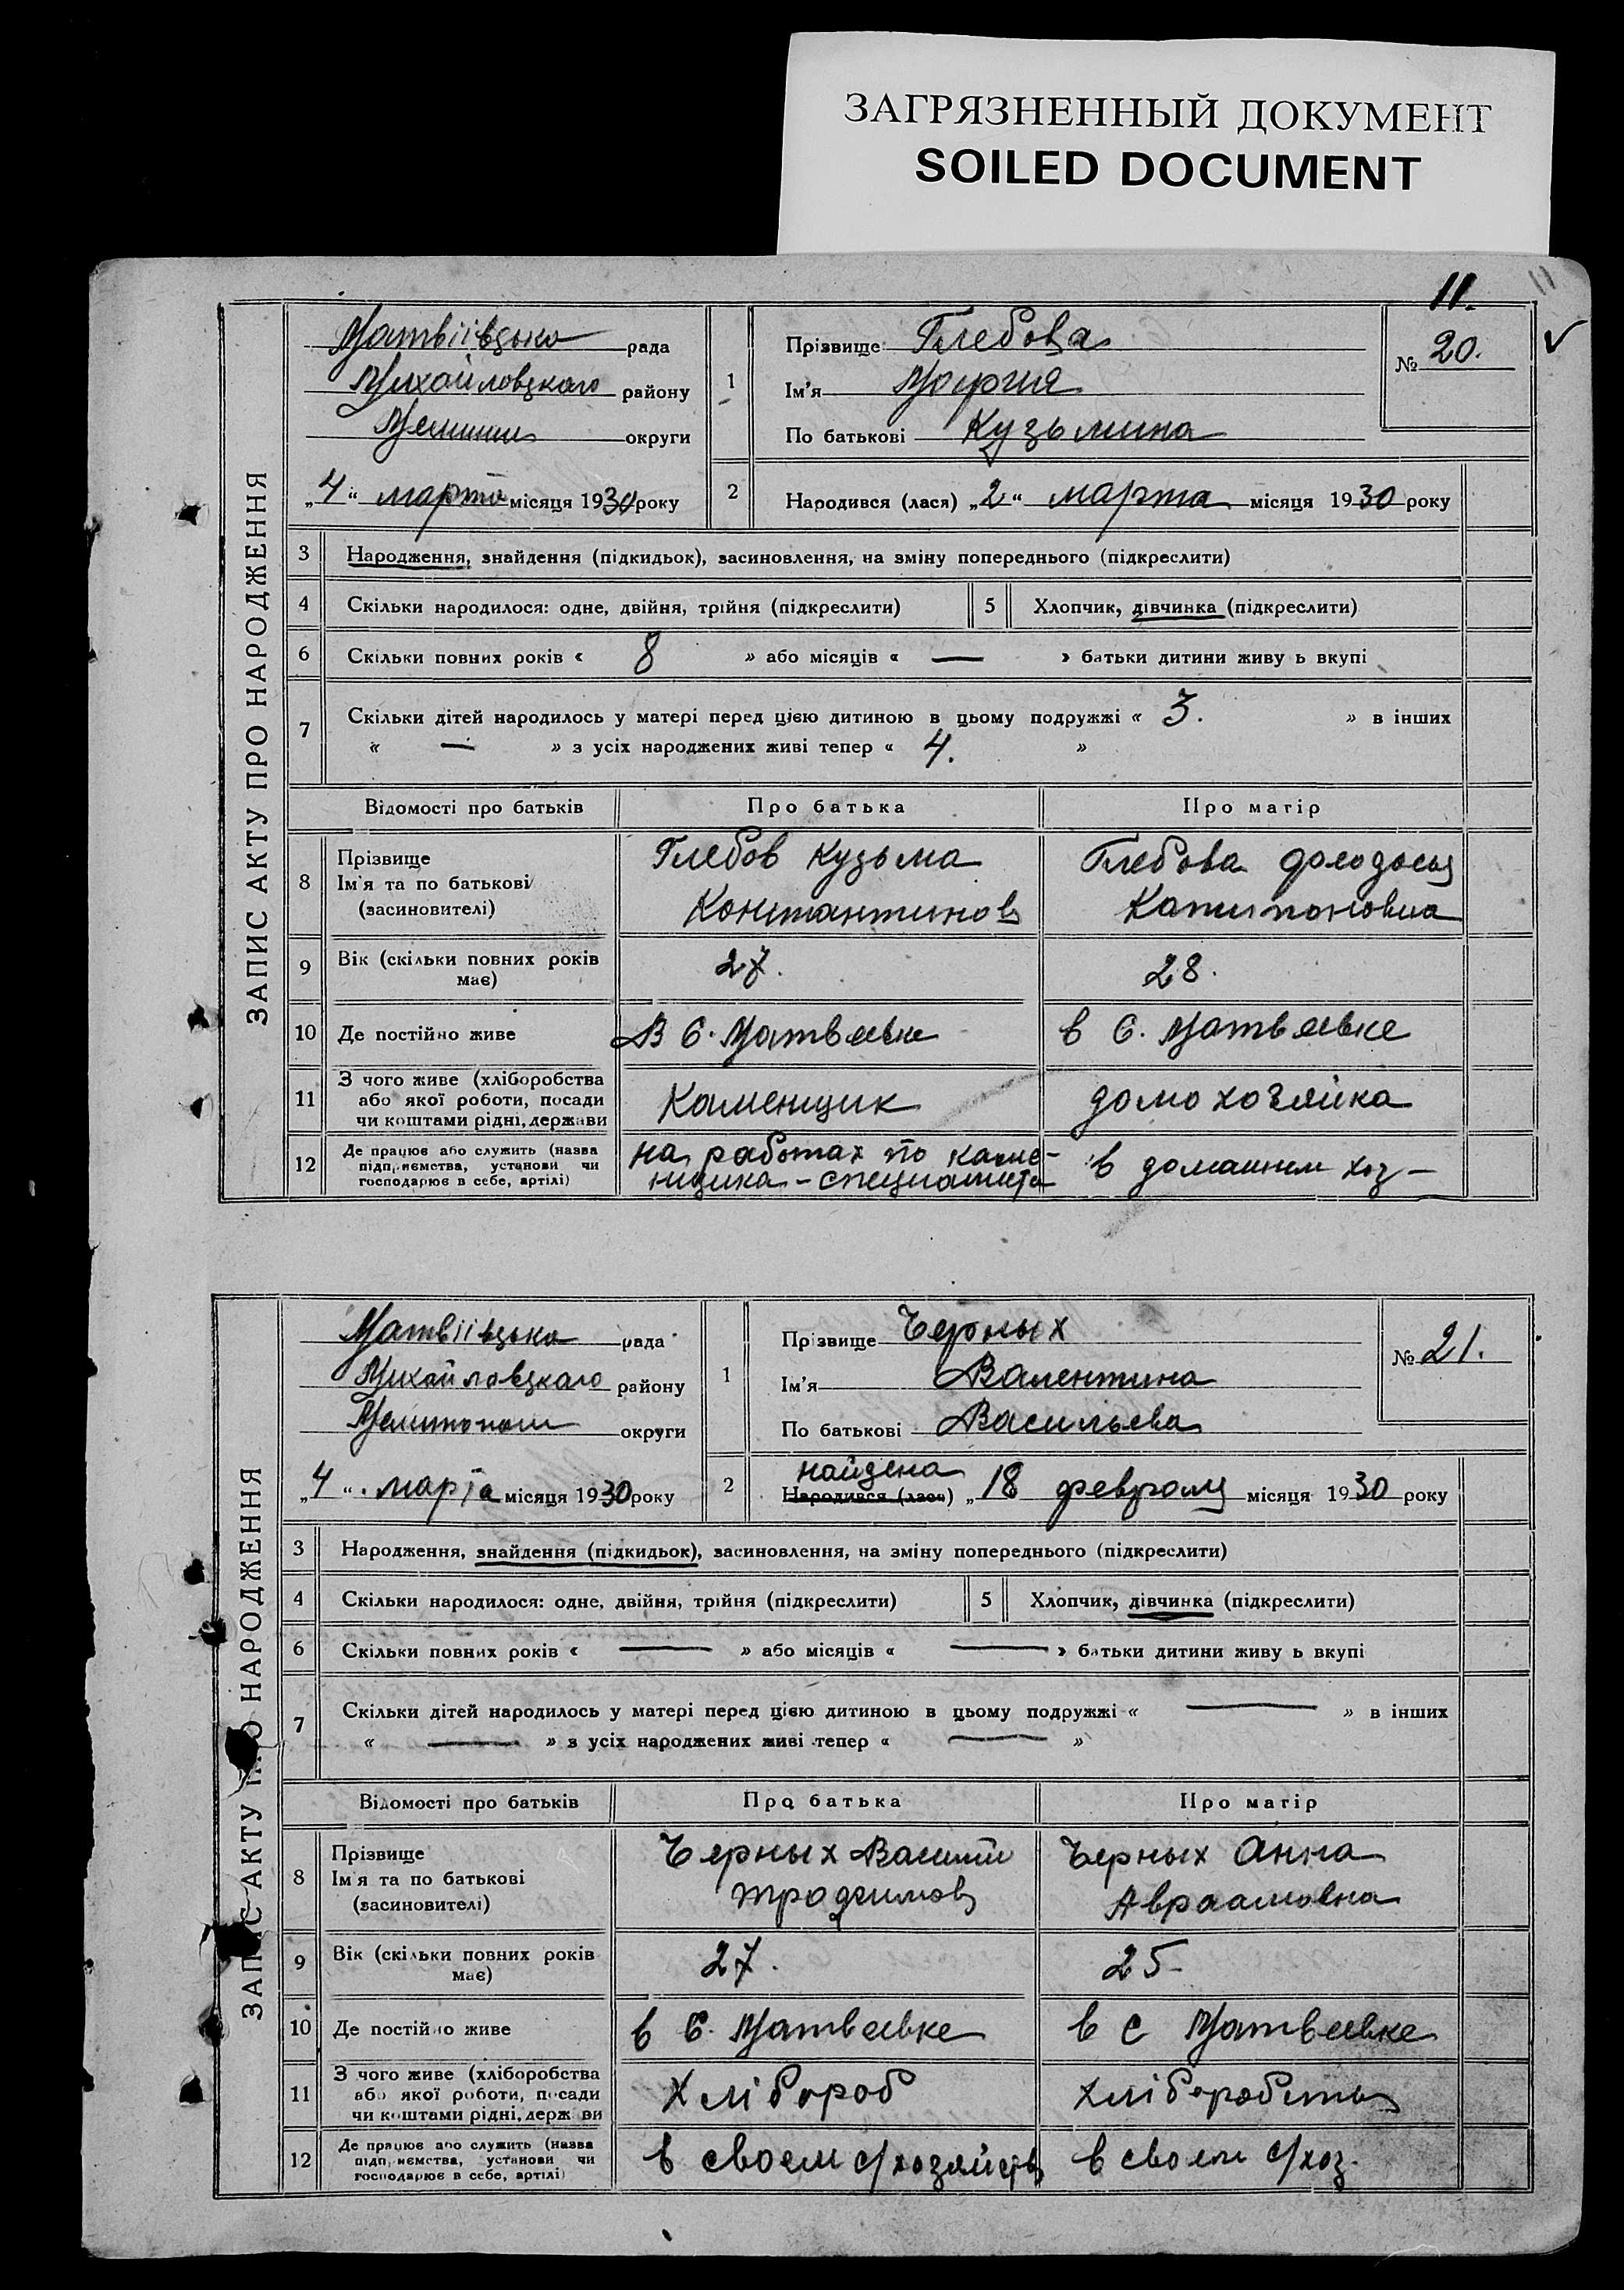 ЗАГРЯЗНЕННЫЙ ДОКУМЕНТ
SOILED DOCUMENT
11.
11
ЗАПИС АКТУ ПРО НАРОДЖЕННЯ
Матвіівська рада
Михайловцкаго району
округи
„4“ марта місяця 1930 року
1
Прізвище Глебова
Ім'я Мария
По батькові Кузьмина
№ 20.
2
Народився (лася) „2“ марта місяця 1930 року
3 Народження, знайдення (підкидьок), засиновлення, на зміну попереднього (підкреслити)
4 Скільки народилося: одне, двійня, трійня (підкреслити) 5 Хлопчик, дівчинка (підкреслити)
6 Скільки повних років « 8 » або місяців « — » батьки дитини живу ь вкупі
7 Скільки дітей народилось у матері перед цією дитиною в цьому подружжі « 3. » в інших
« — » з усіх народжених живі тепер « 4. »
Відомості про батьків Про батька Про матір
8 Прізвище
Ім'я та по батькові
(засиновителі)
Глебов Кузьма
Константинов
Глебова
9 Вік (скільки повних років
має)
27.
28.
10 Де постійно живе В С. Матвеевке в С. Матвеевке
11 З чого живе (хліборобства
або якої роботи, посади
чи коштами рідні, держави
Каменщик
домохозяйка
12 Де працює або служить (назва
підприємства, установи чи
господарює в себе, артілі)
на работах по каме-
нщика - специалиста
в домашнем хоз-
ЗАПИС АКТУ ПРО НАРОДЖЕННЯ
Матвіівська рада
Михайловцкаго району
Мелитопол округи
„4“. марта місяця 1930 року
1
Прізвище Черных
Ім'я Валентина
По батькові Васильева
№ 21.
2
найдена
Народився (лася) „18 февраля місяця 1930 року
3 Народження, знайдення (підкидьок), засиновлення, на зміну попереднього (підкреслити)
4 Скільки народилося: одне, двійня, трійня (підкреслити) 5 Хлопчик, дівчинка (підкреслити)
6 Скільки повних років « — » або місяців « — » батьки дитини живу ь вкупі
7 Скільки дітей народилось у матері перед цією дитиною в цьому подружжі « — » в інших
« — » з усіх народжених живі тепер « — »
Відомості про батьків Про батька Про матір
8 Прізвище
Ім'я та по батькові
(засиновителі)
Черных Василий
Трофимов
Черных Анна
Авраамовна
9 Вік (скільки повних років
має)
27.
25-
10 Де постійно живе в С. Матвеевке в С Матвеевке
11 З чого живе (хліборобства
або якої роботи, посади
чи коштами рідні, держави
Хлібороб
12 Де працює або служить (назва
підприємства, установи чи
господарює в себе, артілі)
в своем с/хозяйств
в своем с/хоз.